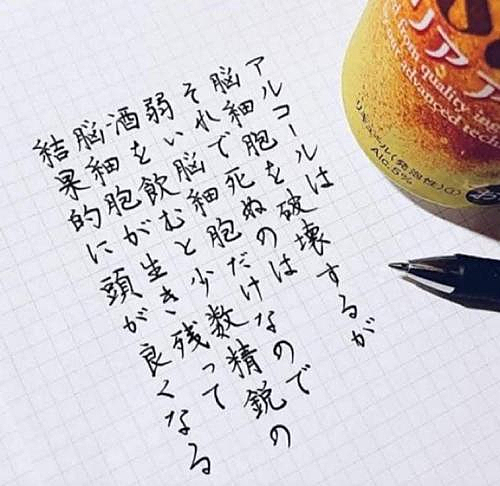 アルコールは
脳細胞を破壊するが
それで死ぬのは
弱い脳細胞だけなので
酒を飲むと少数精鋭の
脳細胞が生き残って
結果的に頭が良くなる
リア
from quality in
your advanced
リキュール(発泡性)①
Alc.5%